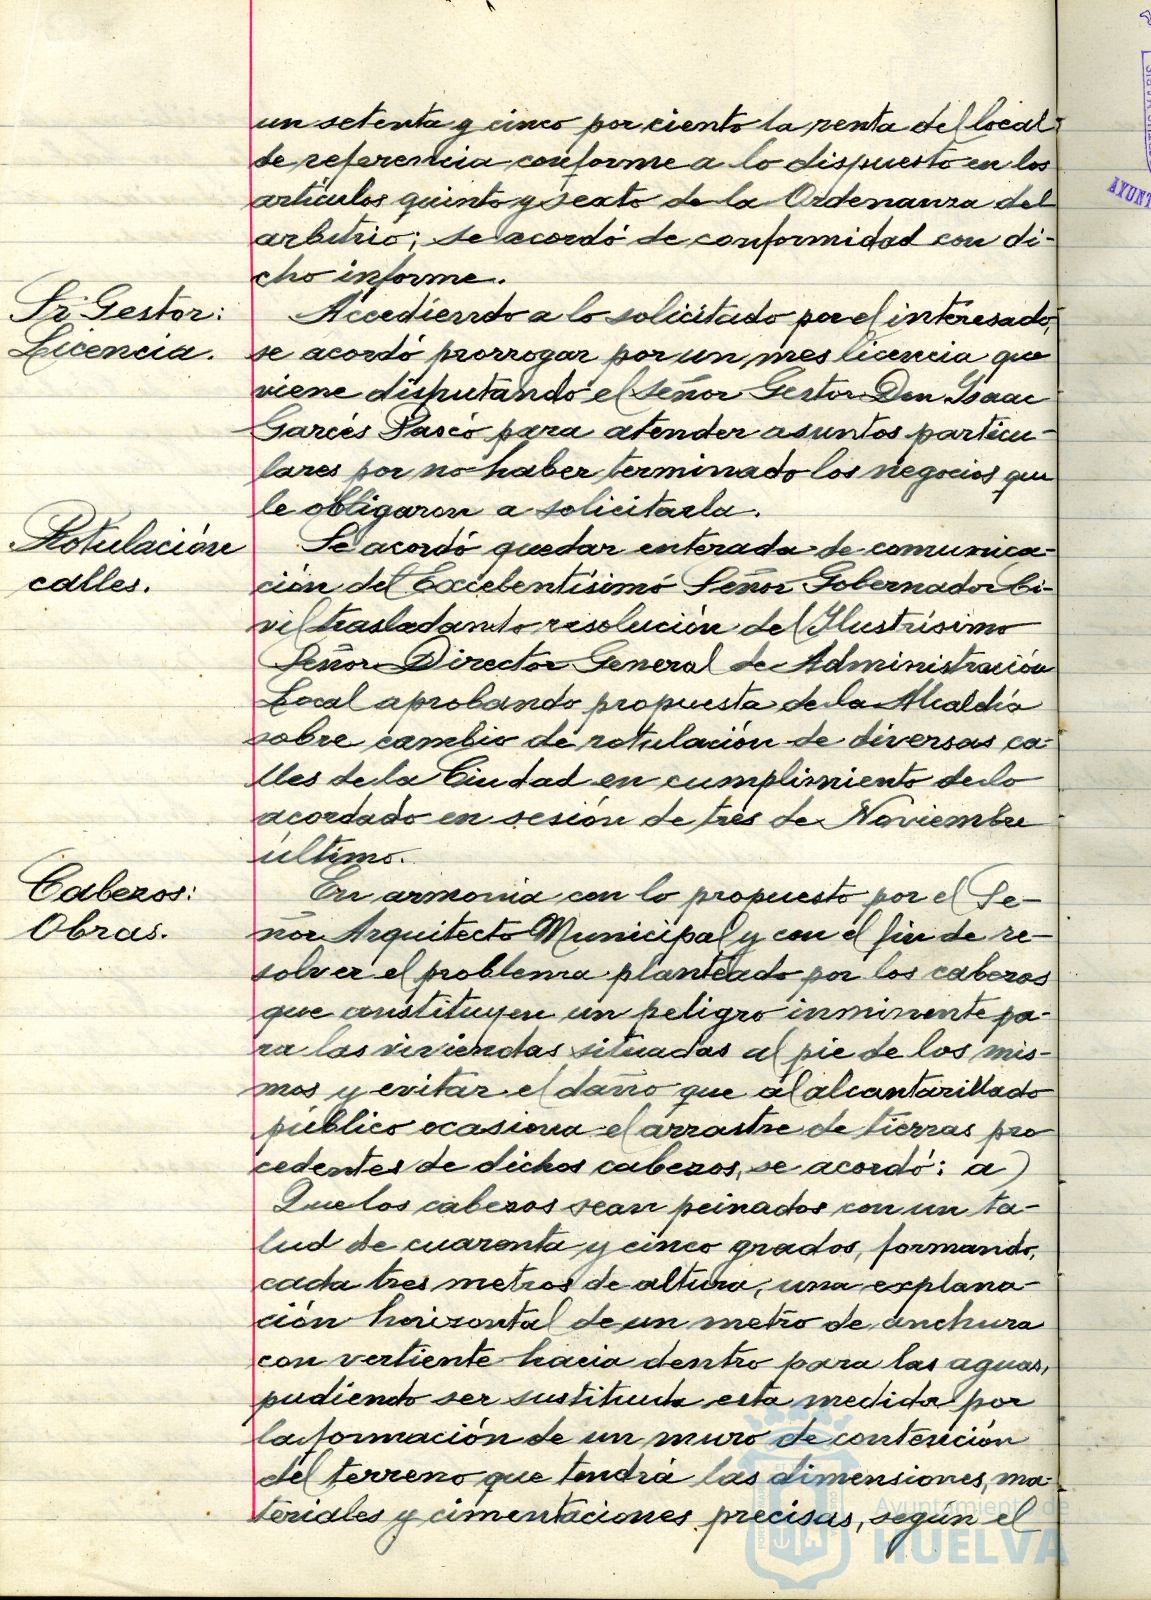 un setenta y cinco por ciento la renta del local
de referencia conforme a lo dispuesto en los
artículos quinto y sexto de la Ordenanza del
arbitrio; se acordó de conformidad con di-
cho informe.
Sr. Gestor:
Licencia.
Accediendo a lo solicitado por el interesado,
se acordó prorrogar por un mes licencia que
viene disfrutando el Señor Gestor Don Isaac
Garcés Pascó para atender asuntos particu-
lares por no haber terminado los negocios que
le obligaron a solicitarla.
Rotulación
calles.
Se acordó quedar enterada de comunica-
ción del Excelentísimo Señor Gobernador Ci-
vil trasladando resolución del Ilustrísimo
Señor Director General de Administración
Local aprobando propuesta de la Alcaldía
sobre cambio de rotulación de diversas ca-
lles de la Ciudad en cumplimiento de lo
acordado en sesión de tres de Noviembre
último.
Cabezos:
Obras.
En armonía con lo propuesto por el Se-
ñor Arquitecto Municipal y con el fin de re-
solver el problema planteado por los cabezos
que constituyen un peligro inminente pa-
ra las viviendas situadas al pie de los mis-
mos y evitar el daño que al alcantarillado
público ocasiona el arrastre de tierras pro
cedentes de dichos cabezos, se acordó: a)
Que los cabezos sean peinados con un ta-
lud de cuarenta y cinco grados, formando,
cada tres metros de altura, una explana-
ción horizontal de un metro de anchura
con vertiente hacia dentro para las aguas,
pudiendo ser sustituida esta medida por
la formación de un muro de contención
del terreno que tendrá las dimensiones, ma-
teriales y cimentaciones precisas, según el
Ayuntamiento de
HUELVA